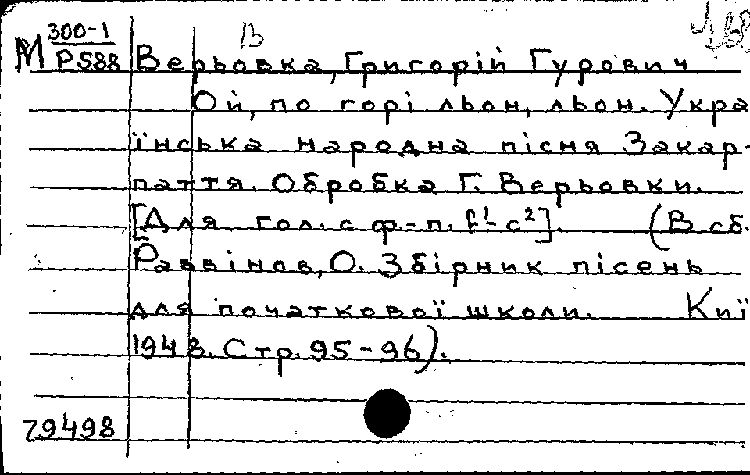 300-1 В
М Р588 Верьовка, Григорій Гурович
Ой, по горі льон, льон. Укра
їнська народна пісня Закар-
паття. Обробка Г. Верьовки.
[Для гол. с ф.-п. f¹-c²]. (В сб.
Раввінов, О. Збірник пісень
для початкової школи. Киї
1948. Стр. 95-96).
79498